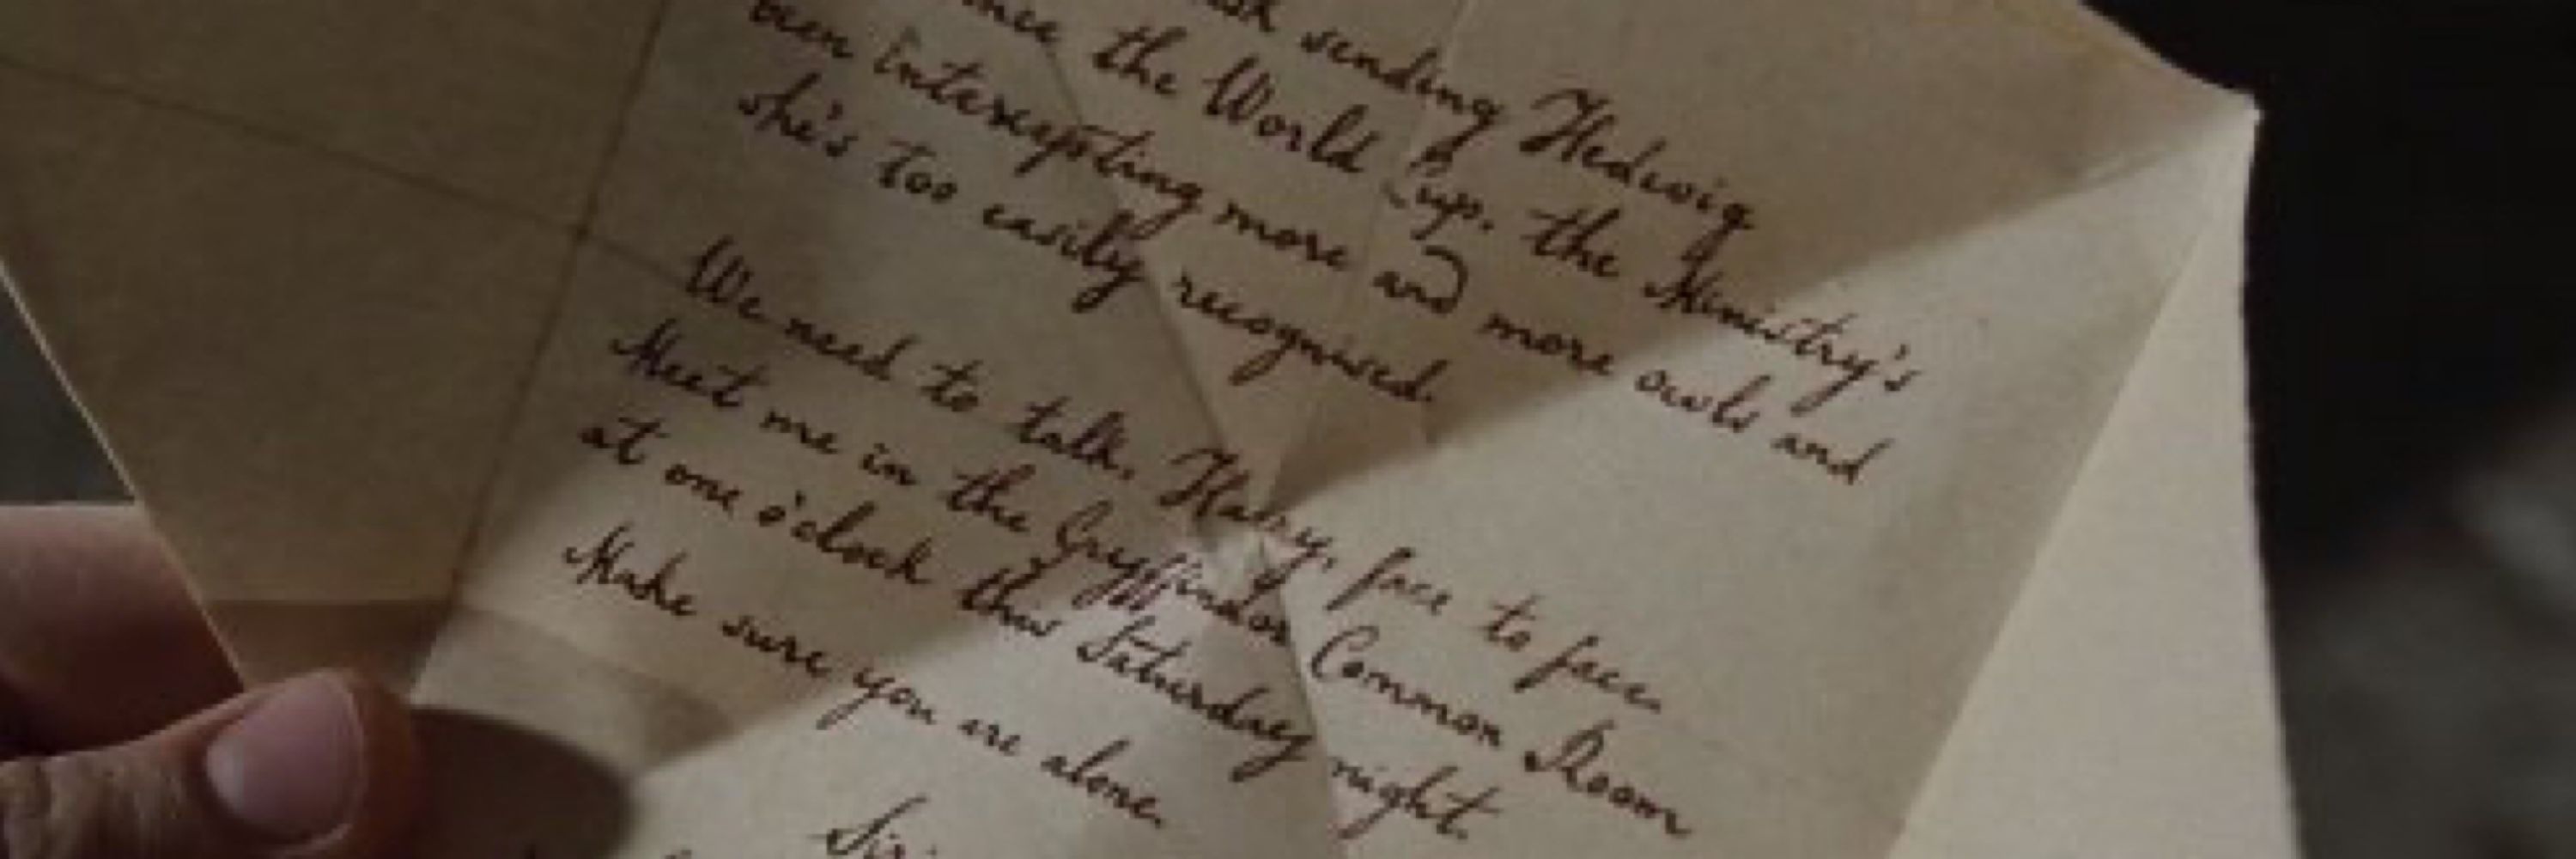 sending Hedwig
the World Cup, the Ministry's
been intercepting more and more owls and
she's too easily recognised.
We need to talk, Harry, face to face.
Meet me in the Gryffindor Common Room
at one o'clock this Saturday night.
Make sure you are alone.